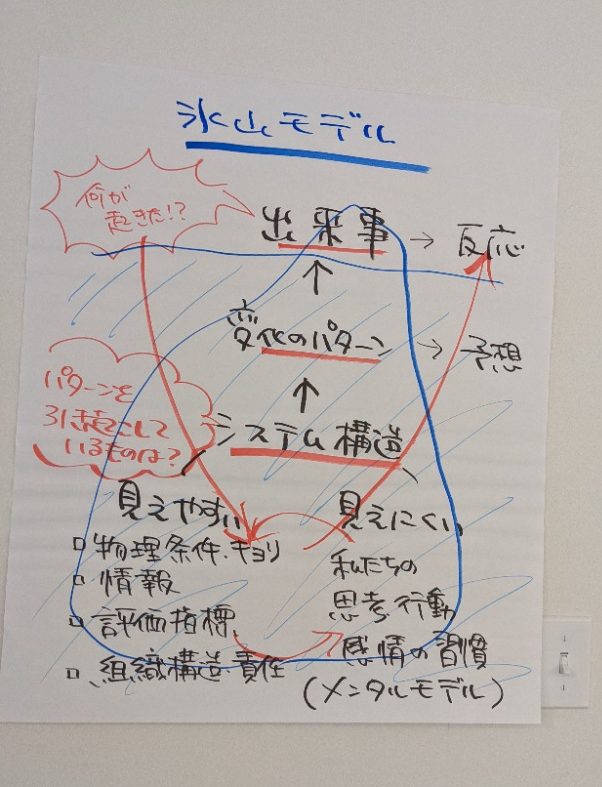 氷山モデル
何が
起きた!?
出来事 → 反応
↑
変化のパターン → 予想
↑
パターンを
引き起こして
いるものは?
システム構造
見えやすい
□物理条件・キョリ
□情報
□評価指標
□組織構造・責任
見えにくい
私たちの
思考・行動
感情の習慣
(メンタルモデル)